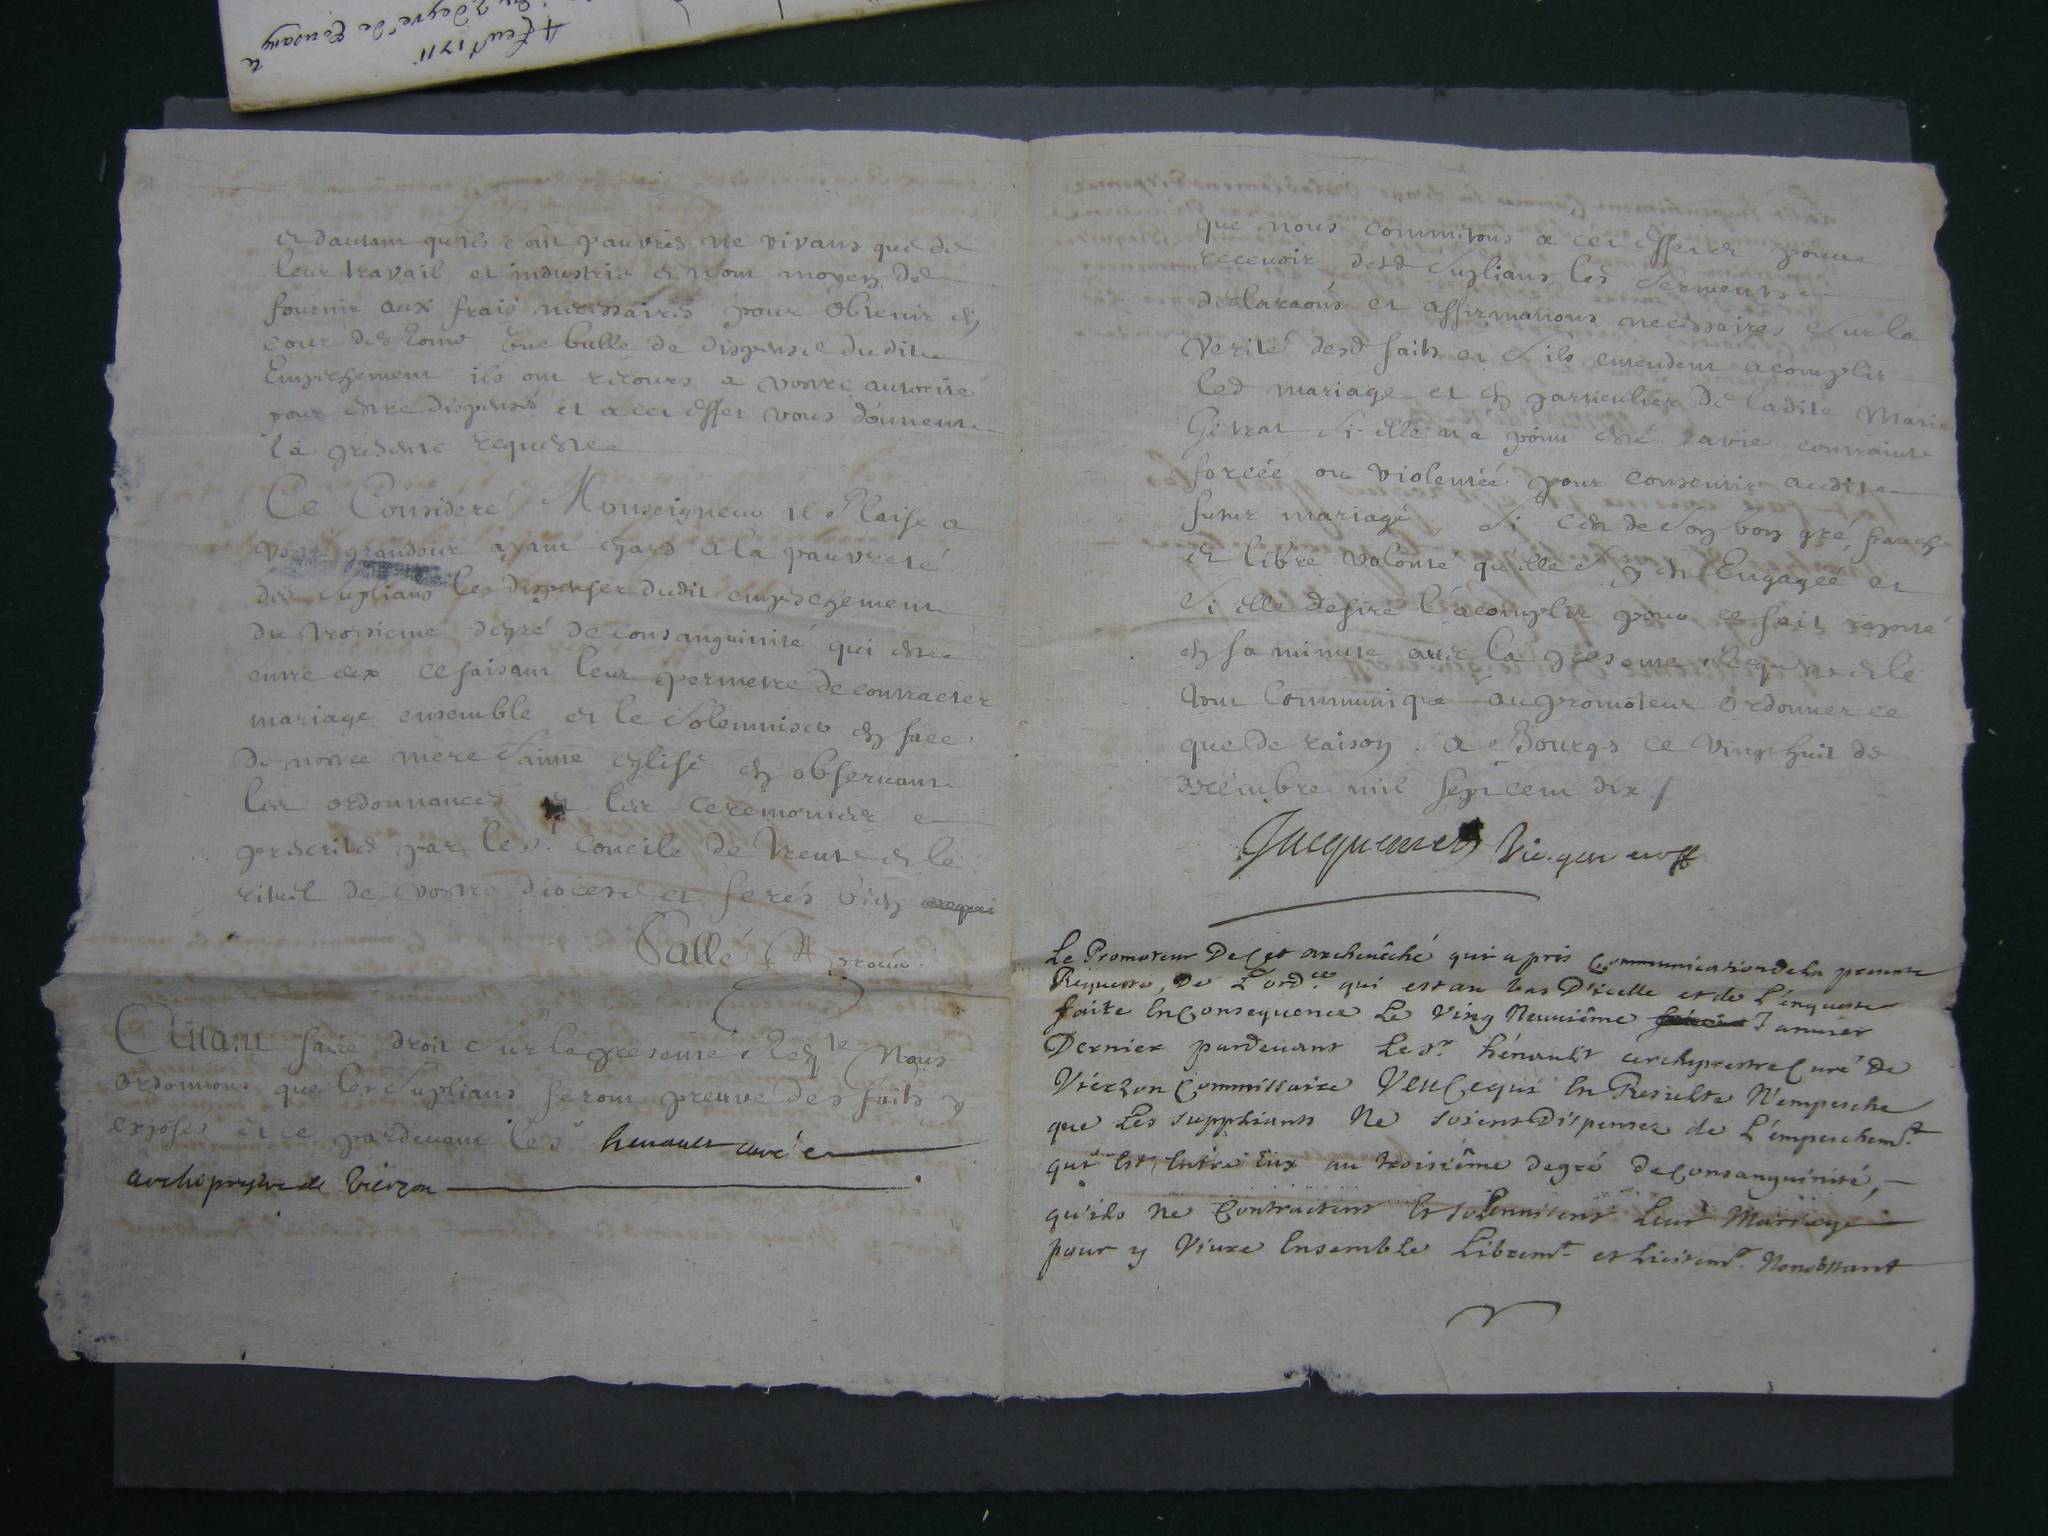 4 feur 1711
et dautant qu'ils sont pauvres ne vivans que de
leur travail et industrie et n'ont moyen de
fournir aux frais necessaires pour obtenir en
cour de Rome une bulle de dispense dudit
Empeschement ils ont recours a vostre autorité
pour estre dispensés et a cet effet vous donnent
la presente requeste
Ce Consideré Monseigneur il Plaise a
vostre grandeur ayant egard a la pauvreté
des suplians les dispenser dudit empeschement
du troisieme degré de consanguinité qui est
entre eux ce faisant leur permetre de contracter
mariage ensemble et le solemniser en face
de nostre mere sainte eglise en observant
les ordonnances et les ceremonies
prescrites par le s.t Concile de trente et le
rituel de vostre diocese et ferés bien
Pallé procur
Auant faire droit sur la presente Reqte Nous
ordonnons que les suplians feront preuve des faits y
exposés et ce pardeuant le sr henault curé
archiprestre de Vierzon
que nous commetons a cet effet et pour
recevoir desd suplians les serments
declaraons et affirmations necessaires sur la
verité desd faits et s'ils entendent acomplir
led mariage et en particulier de ladite Marie
Getrat si elle n'a point esté ravie contrainte
forcéé ou violentéé pour consentir audit
futur mariage, si c'est de son bon gré, franche
et libre volonté qu'elle s'y est Engagéé et
si elle desire l'acomplir pour ce fait raporté
en sa minute avec la presente Requeste et le
tout Communiqué au promoteur ordonner ce
que de raison. a Bourgs ce vingt huit de
decembre mil sept cent dix /
Jacquemet Vic. gen
Le Promoteur De Cet archeuêché qui a pris Communication de la presente
Requeste, de L'ord.ce qui est au bas D'icelle et de L'enqueste
faite En Consequence Le Ving Neuuiéme Januier
Dernier pardeuant Le Sr. hénault archiprestre Curé de
Vierzon Commissaire Veu Ce qui En Resulte N'empesche
que Les supphiants Ne soient Dispensez de L'empeschemt.
qui Est, Entre Eux au troisiéme degré de Consanguinité,
qu'ils Ne Contractent Et solennisent Leur Mariage
pour y Viure Ensemble Libremt. et Licitemt. Nonobstant